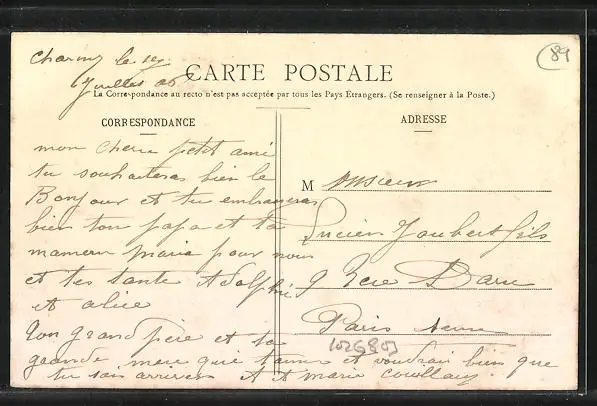 89
Charny le 14
Juillet 06
CARTE POSTALE
La Correspondance au recto n'est pas acceptée par tous les Pays Étrangers. (Se renseigner à la Poste.)
CORRESPONDANCE
mon cheru petit ami
tu souhaiteras bien le
Bonjour et tu embrasseras
bien ton papa et ta
maman maria pour nous
et tes tante Adolphie
et alice
Ton grand père et ta
grande mere qui t'aime et voudrai bien que
tu sois arriver
marie
ADRESSE
Monsieur
Lucien Joubert fils
9 Rue Daru
Paris
1026803